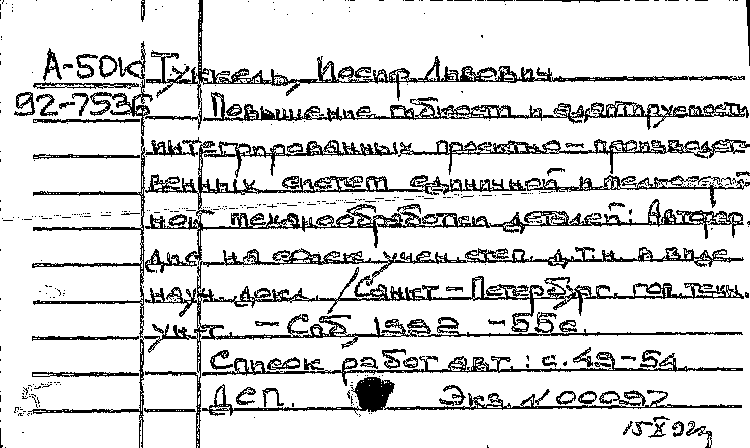 А-50к Туккель, Иосиф Львович.
92-7536 Повышение гибкости и адаптируемости
интегрированных проектно-производст-
венных систем единичной и мелкосерий-
ной механообработки деталей: Автореф.
дис. на соиск. учен. степ. д.т.н. в виде
науч. докл. / Санкт-Петербург. гос. техн.
ун-т. - Спб, 1992. - 55с.
Список работ авт.: с. 49-54
ДСП. Экз. N 00097
15 X 92